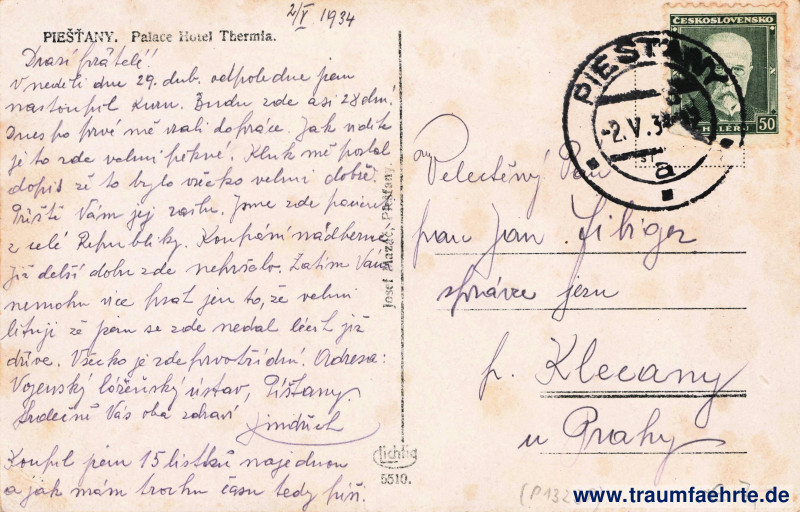 2/V 1934
PIEŠŤANY. Palace Hotel Thermia.
Drazí přátelé!!
V neděli dne 29. dub. odpoledne jsem
nastoupil kuru. Budu zde asi 28 dní.
Dnes po prvé mě vzali do práce. Jak vidíte
je to zde velmi pěkné. Kluk mě poslal
dopis že to bylo všecko velmi dobře.
Příště Vám jej zašlu. Jsme zde
z celé Republiky. Koupání nádherné
Již delší dobu zde nepršelo. Zatím Vám
nemohu více psát jen to, že velmi
lituji že jsem se zde nedal léčit již
dříve. Všecko je zde prvotřídní. Adresa:
Vojenský léčebný ústav, Píšťany
Srdečně Vás oba zdraví
Jindřich
Koupil jsem 15 lístků najednou
a jak mám trochu času tedy píši.
Josef Piešťany
Lichtig
5510.
ČESKOSLOVENSKO
HALÉŘŮ
50
PIEŠŤANY
-2.V.34
a
Velectěný Pan
pan Jan
správce
p. Klecany
u Prahy
www.traumfaehrte.de